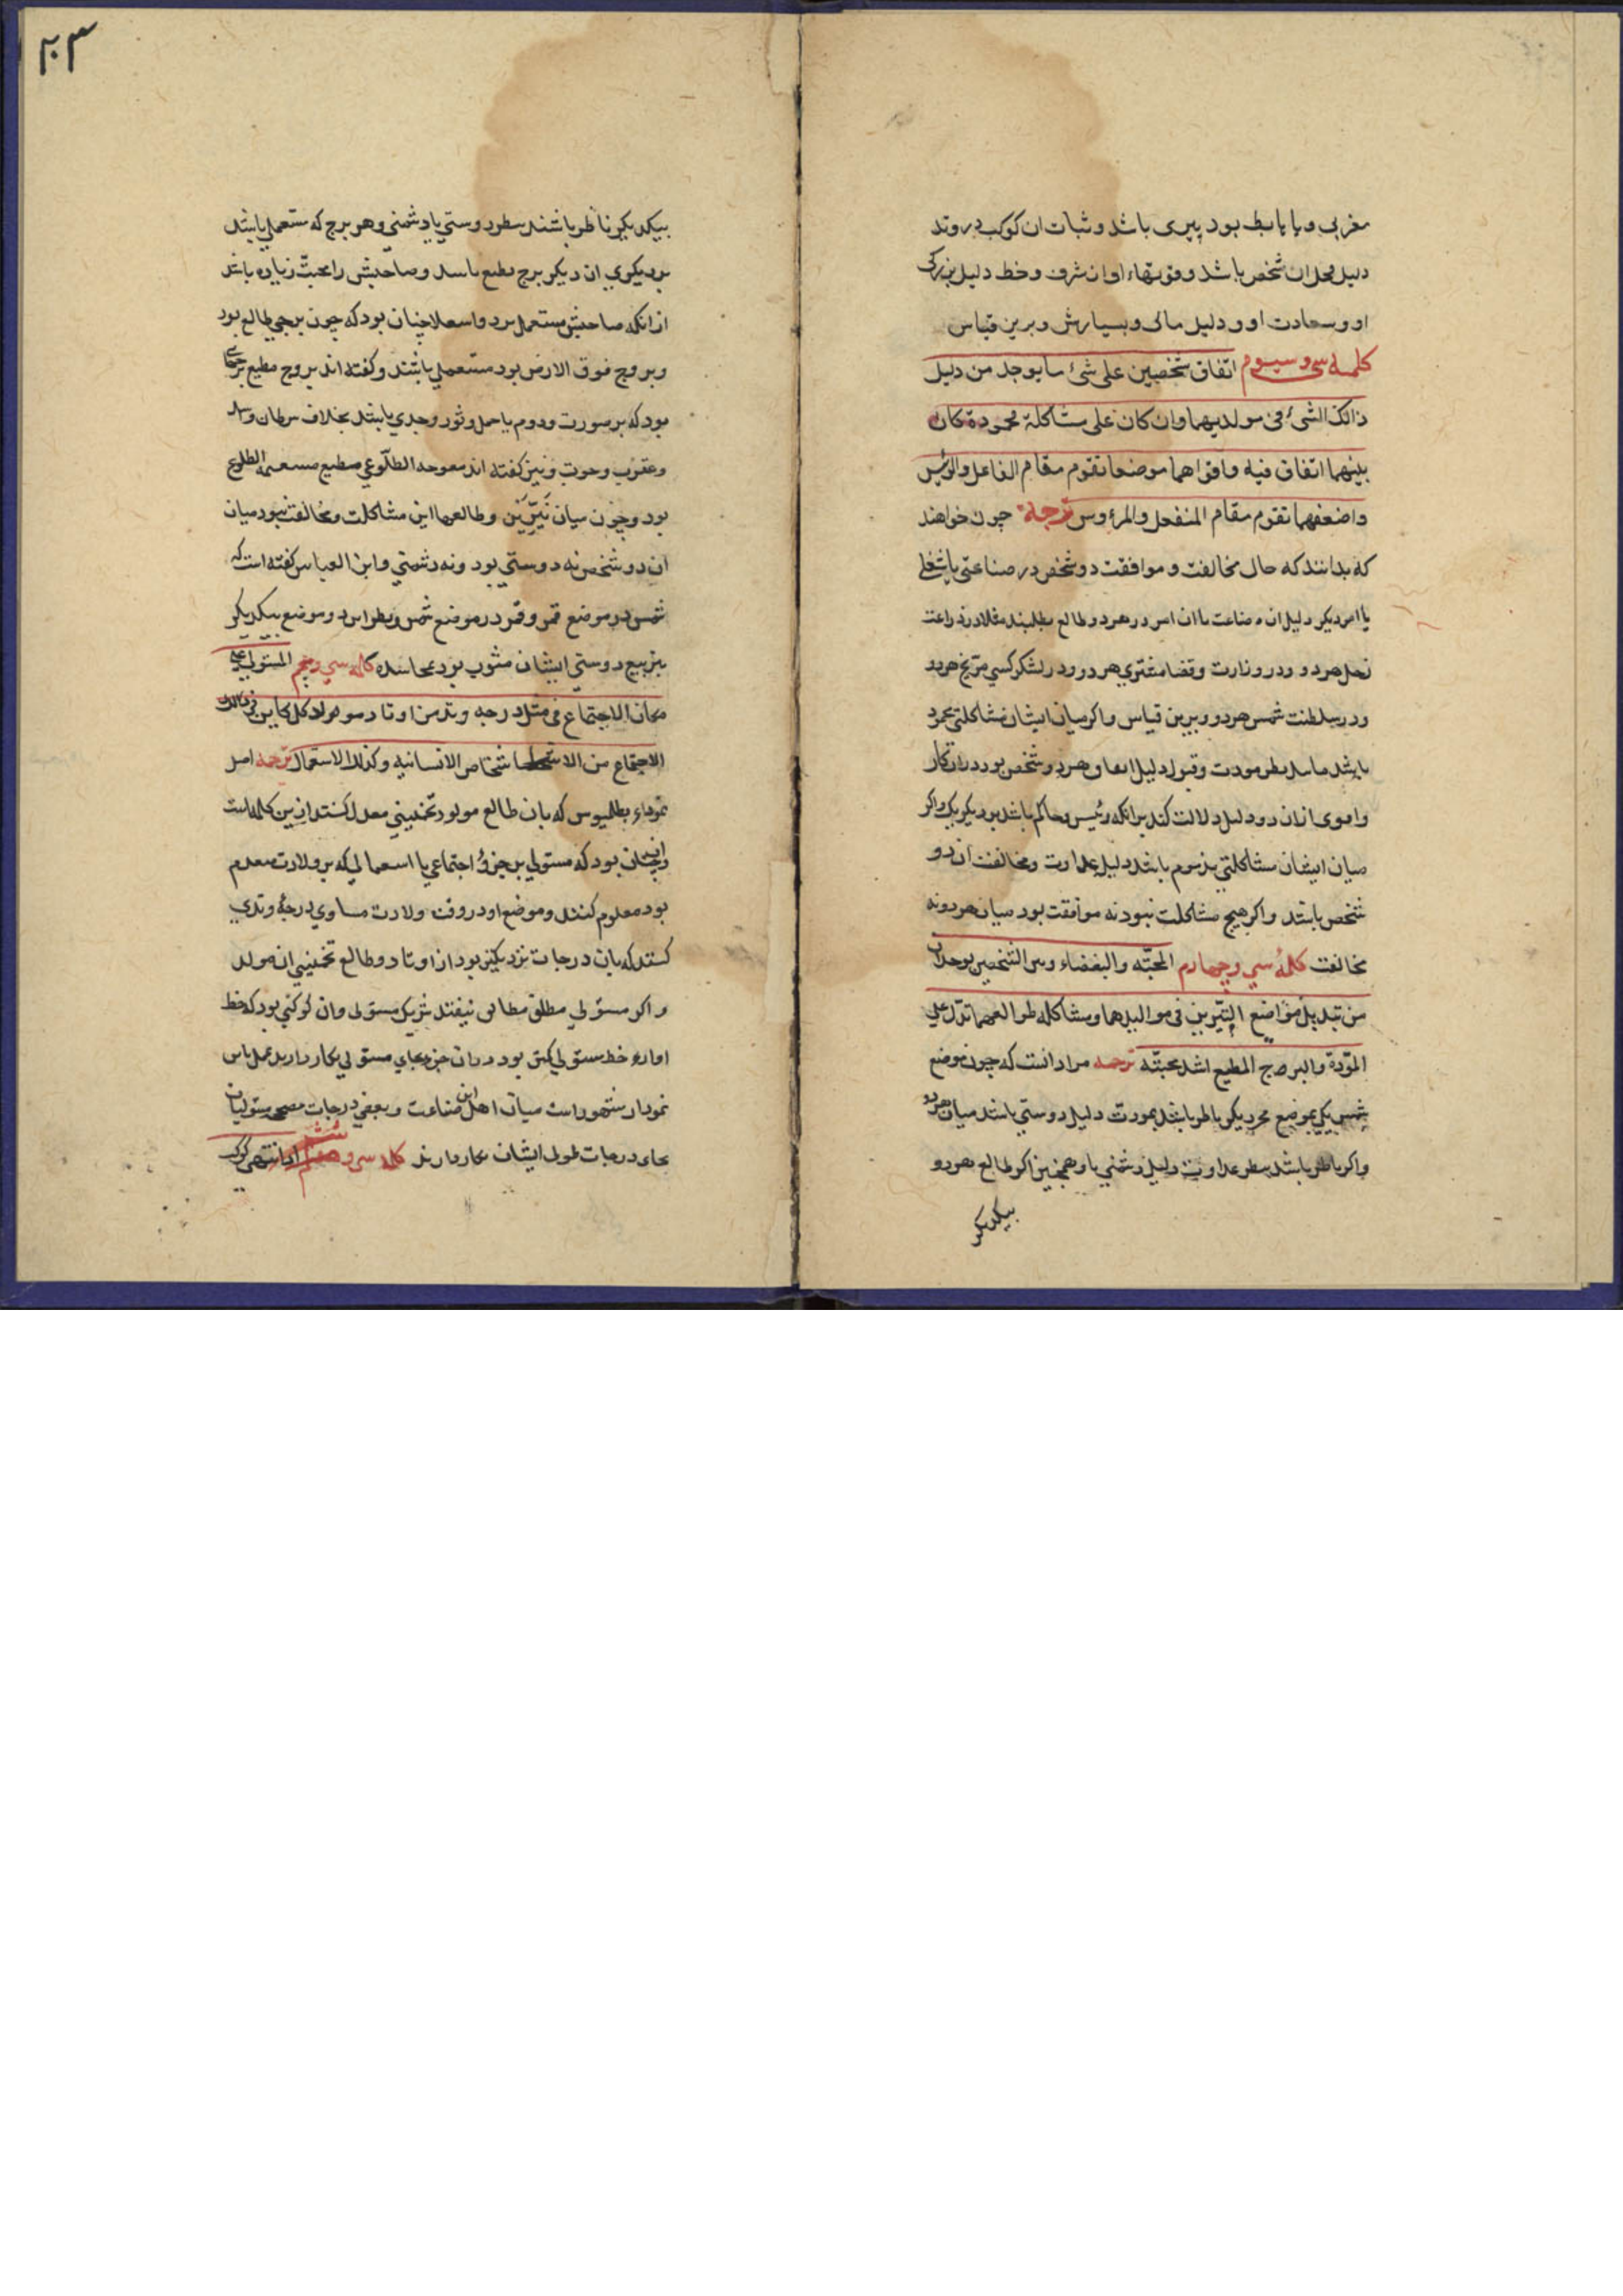 مغربی و یا یابط بود پیری باشد و ثبات ان کوکب در وتد
دلیل محل ان شخص باشد و فوتهاء او ان شرف و خط دلیل بزرکی
او و سعادت او و دلیل مالی و بسیارش و برین قیاس
کلمه سی و سیوم اتفاق شخصین علی شئ ما یوجد من دلیل
ذالک الشئ فی مولدیهما وان کان علی مشاکلة محمودة کان
بینهما اتفاق فیه واقواهما موضعا تقوم مقام الفاعل والرئیس
واضعفهما تقوم مقام المنفعل والمرؤوس ترجمه چون خواهند
که بدانند که حال مخالفت و موافقت دو شخص در صناعتی یا شغلی
یا امر دیکر دلیل ان صناعت یا ان امر در هر دو طالع بطلبند مثلا در زراعت
زحل هر دو و در وزارت و قضا مشتری هر دو و در لشکرکسی مریخ هر دو
و در سلطنت شمس هر دو و برین قیاس و اکر میان ایشان مشاکلتی محمود
باشد بنظر مودت و قبول دلیل هر دو شخص بود در ان کار
و اقوی از ان دو دلیل دلالت کند برانکه رئیس و حاکم باشد بود بر دیکر یک و اکر
میان ایشان مشاکلتی مذموم باشد دلیل عداوت و مخالفت ان دو
شخص باشد و اکر هیچ مشاکلت نبود نه موافقت بود میان هر دو نه
مخالفت کلمهٔ سی و چهارم المحبّه والبغضاء وبین الشخصین یوجدان
من تبدیل مواضع النیّرین فی موالیدهما ومشاکله طوالعهما تدلّ علی
المّودة والبروج المطیع اشد محبته ترجمه مراد انست که چون موضع
شمس یکی بموضع قمر دیکر ناظر باشد بمودت دلیل دوستی باشد میان هر دو
و اکر ناظر باشد بنظر عداوت دلیل دشمنی باو همچنین اکر طالع هر دو
بیکدیکر
۲۰۳
بیکدیکر ناظر باشند بنظر دوستی یا دشمنی و هر برج که مستعملی باشد
بر دیکری ان دیکر برج مطیع باشد و صاحبش را محبّت زیاده باشد
از انکه صاحبش مستعمل بود و استعلا چنان بود که چون برجی طالع بود
و بروج فوق الارض بود مستعملی باشند و کفته اند بروج مطیع برجهای
بود که بر صورت مردم یا حمل و ثور و جدی باشد بخلاف سرطان و اسد
و عقرب و حوت و نیز کفته اند معوجه الطلّوعی مطیع مستقیم الطلوع
بود و چون میان نَیّرَین و طالعها این مشاکلت و مخالفت نبود میان
ان دو شخص نه دوستی بود و نه دشمنی و ابن العباس کفته است که
شمس در موضع قمر و قمر در موضع شمس و نظر این دو موضع بیکدیکر
بتربیع دوستی ایشان مشوب بود بمحاسده کلمه سی و پنجم المستولی علی
مکان الاجتماع فی مثل درجه وتد من اوتاد موالید کل کاین فی ذالک
الاجتماع من الاشخاص الانسانیه وکذلک الاستقبال ترجمه اصل
نمودار بطلمیوس که بان طالع مولود تخمینی معدل کنند از این کلمه است
و چنان بود که مستولی بر جزؤ اجتماعی یا استقبالی که بر ولادت مقدم
بود معلوم کنند و موضع او در وقت ولادت مساوی درجهٔ وتدی
کنند که بان درجات نزدیکتر بود از اوتاد و طالع تخمینی ان مولد
و اکر مستولی مطلق مطالع نیفتد شریک مستولی و ان کوکبی بود که خط
او از خط مستولی کمتر بود در ان جزء بجای مستولی بکار دارند عمل باین
نمودار مشهور است میان اهل این صناعت و بعضی درجات مصحح مستولیان
بجای درجات طول ایشان بکار دارند کلمه سی و ششم اذا انتهی کوکب